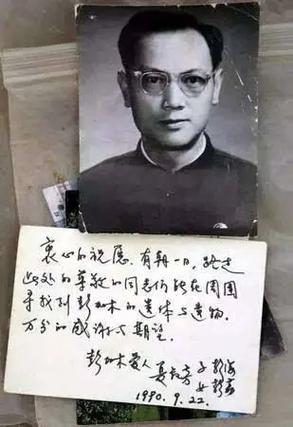 衷心的祝愿. 有朝一日, 路过
此处的尊敬的同志们能在周围
寻找到彭加木的遗体与遗物.
万分的感谢与期望.
彭加木爱人 夏叔芳 子 彭海
女 彭荔
1990.9.22.